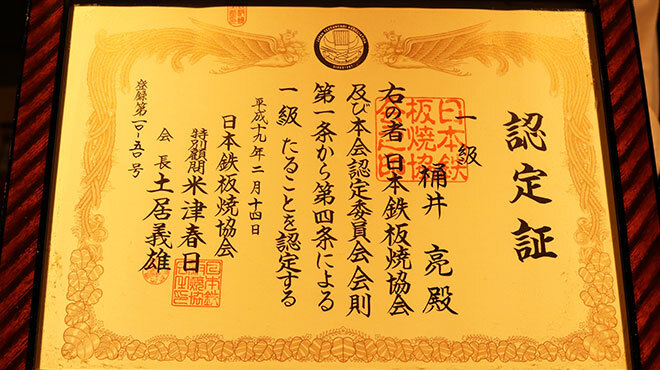 認定証
一級
桶井 亮 殿
右の者 日本鉄板焼協会
及び本会認定委員会会則
第一条から第四条による
一級 たることを認定する
平成十九年二月十四日
日本鉄板焼協会
特別顧問 米津春日
会長 土居義雄
登録第一〇-五〇号
日本鉄
板焼協